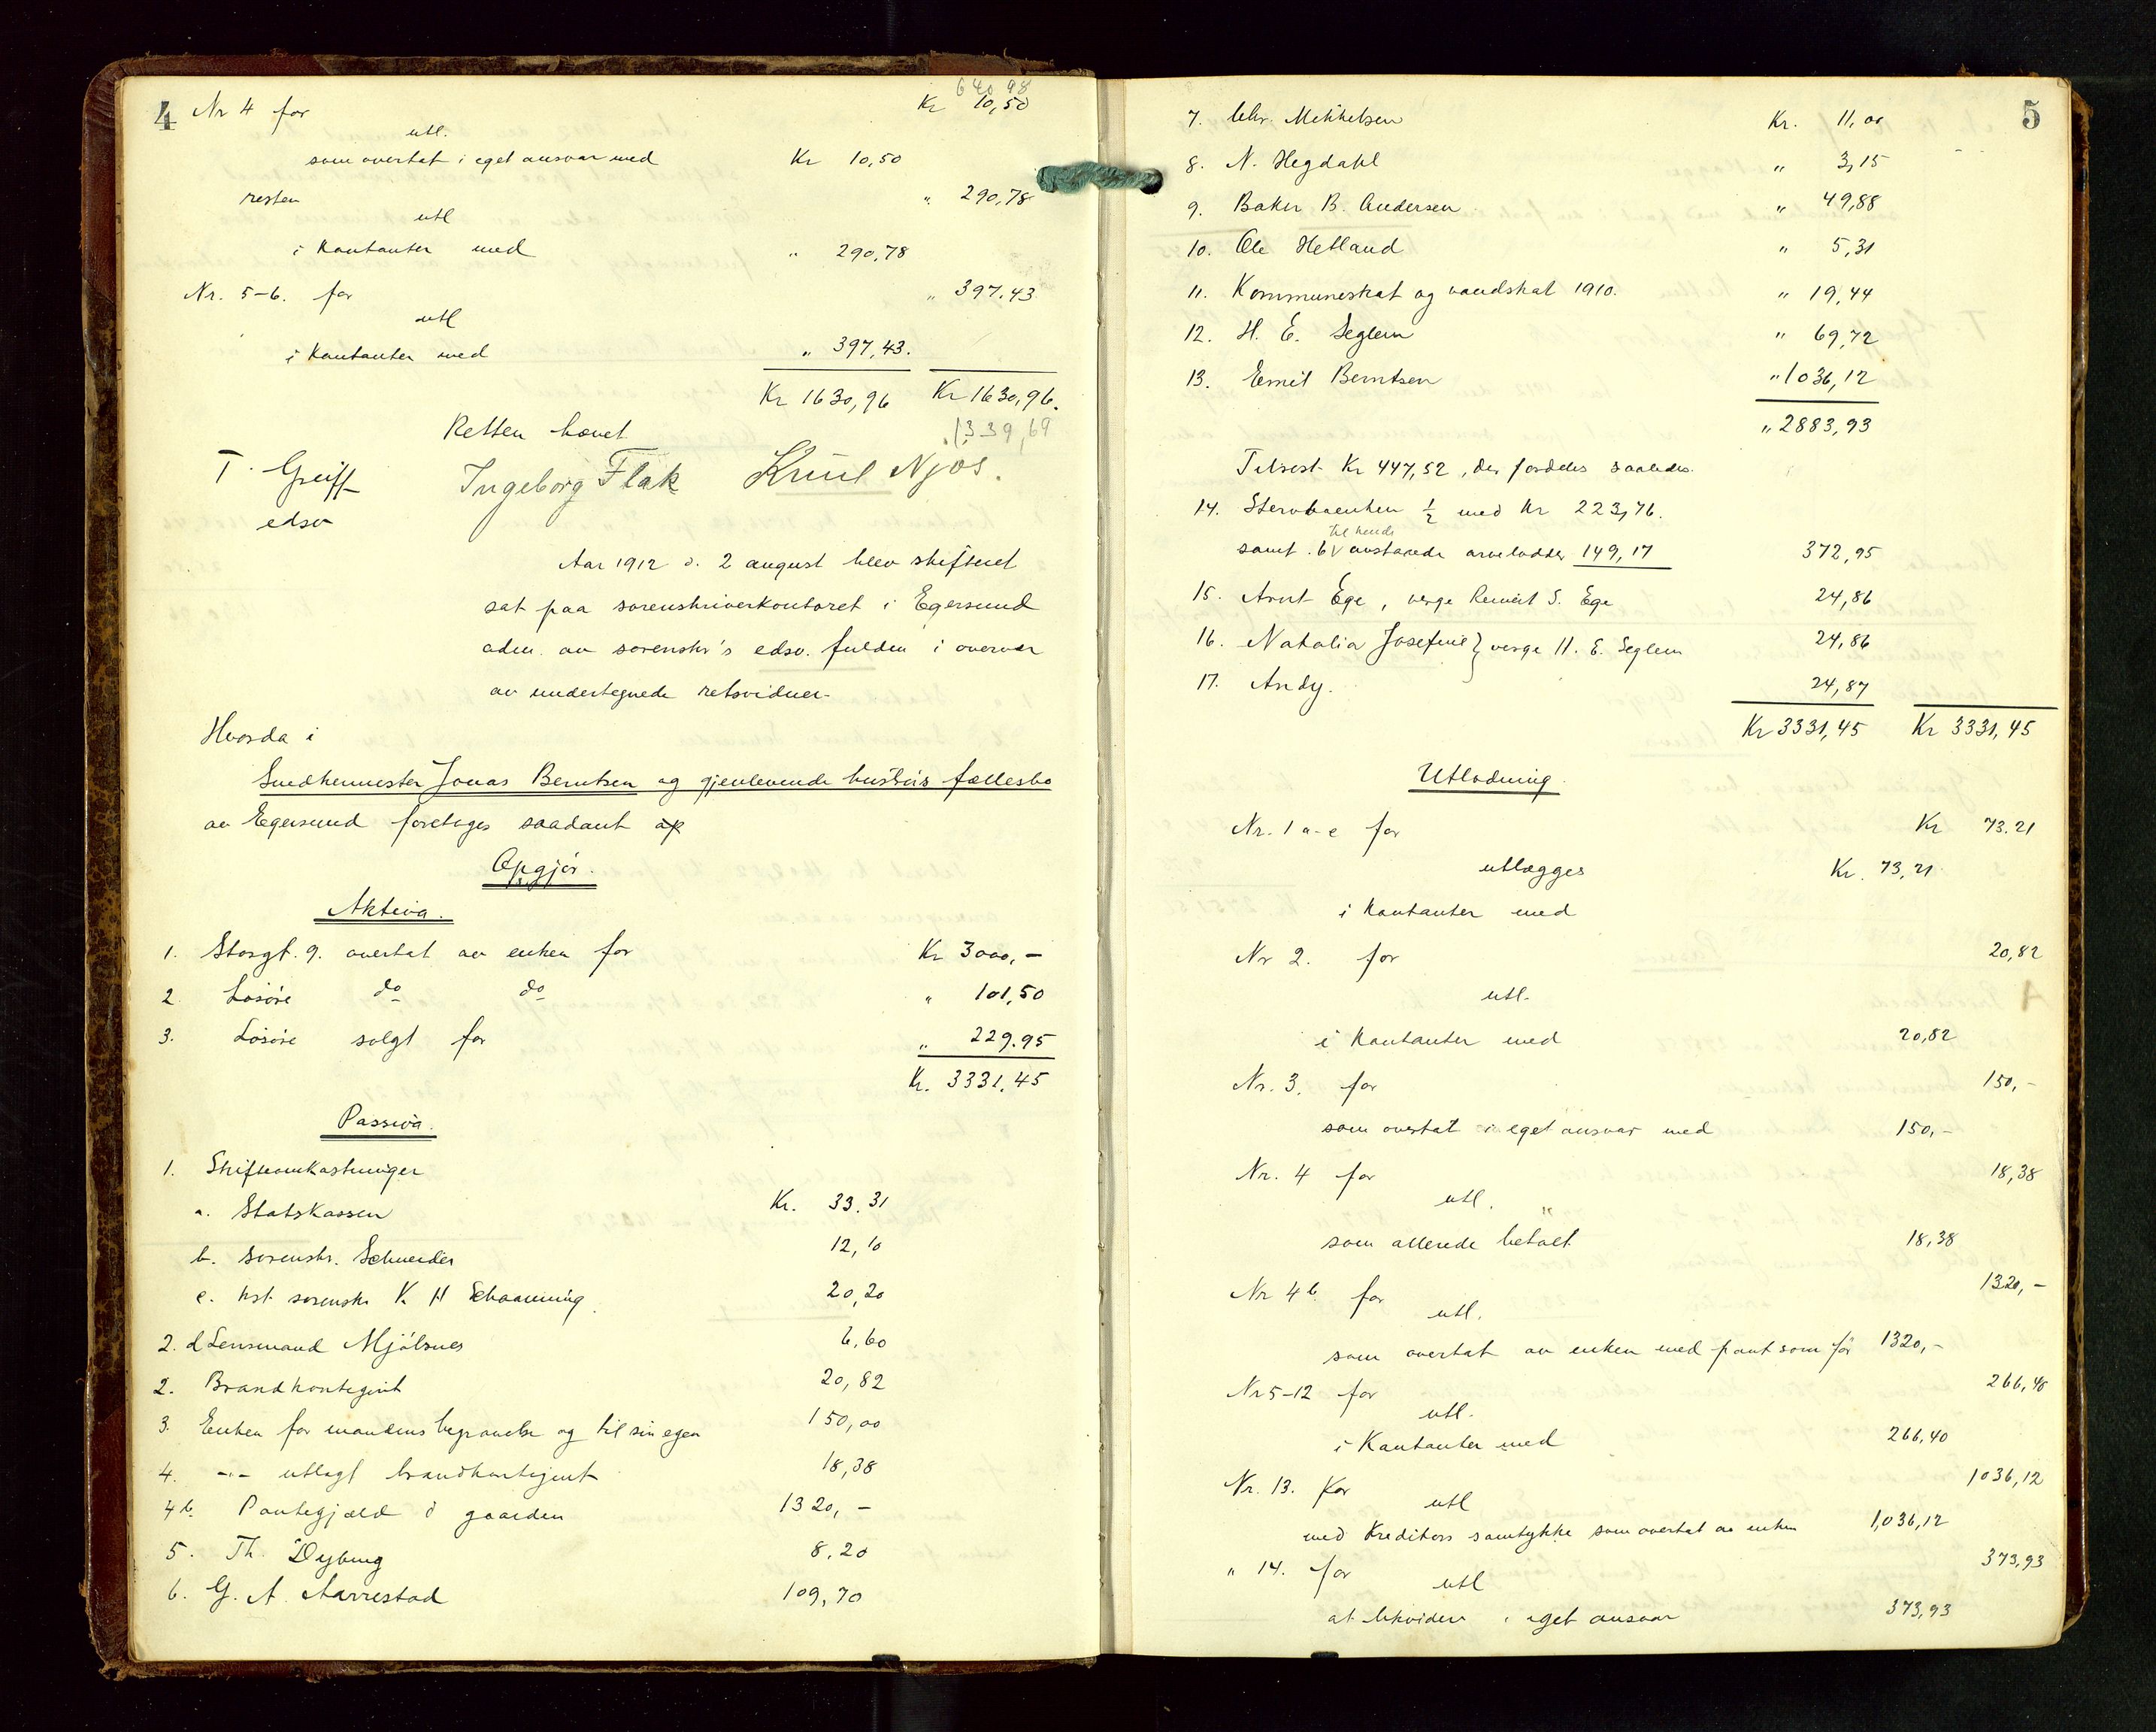 4
640 98
Nr 4 for Kr 10,50
utl.
som overtat i eget ansvar med Kr 10,50
resten " 290,78
utl
i Kontanter med " 290,78
Nr. 5-6. for " 397.43
utl
i Kontanter med " 397,43.
Kr 1630,96 Kr 1630,96.
1339,69
Retten hævet
T. Greiff Ingeborg Flak Knut Njos.
edsv
Aar 1912 d. 2 august blev skifteret
sat paa sorenskriverkontoret i Egersund
adm. av sorenskr's edsv. fuldm i overvær
av undertegnede retsvidner.
Hvorda i
Smedkermester Jonas Berntsen og gjenlevende hustrus fællesbo
av Egersund foretages saadant op
Opgjør.
Aktiva.
1. Storgt. 9. overtat av enken for Kr 3000,-
2 Løsøre do do " 101,50
3. Løsøre solgt for " 229.95
Kr. 3331.45
Passiva.
1. Skifteomkostninger
a. Statskassen Kr. 33.31
b. sorenskr. Schneider 12,10
c. kst. sorenskr K H Schaanning 20,20
2. d Lensmand Mjølsnes 6,60
2. Brandkontegint 20,82
3. Enken for mandens begravelse og til sin egen 150,00
4. -"- utlagt brandkontegint 18,38
4b. Pantegjæld i gaarden 1320,-
5. Th. Dybing 8,20
6. G. A. Aarrestad 109,70
5
7. Chr. Mikkelsen Kr. 11,00
8. N. Hegdahl " 3,15
9. Baker B. Andersen " 49,88
10. Ole Hetland " 5,31
11. Kommuneskat og vandskat 1910. " 19,44
12. H. E. Seglem " 69,72
13. Emil Berntsen " 1036,12
" 2883,93
Tilrest Kr 447,52, der fordeles saaledes.
14. Stervboenken 1/2 med Kr 223,76.
til hende
samt 6 avstaaede arvelodder 149,17 372,95
15. Arnt Ege, verge Reinert S. Ege 24,86
16. Natalia Josefine } verge H. E. Seglem 24,86
17. Andy. 24,87
Kr 3331,45 Kr 3331,45
Utlodning.
Nr. 1 a-e for Kr 73.21
utlægges Kr. 73,21
i Kontanter med
Nr 2. for 20,82
utl.
i Kontanter med 20,82
Nr. 3. for 150,-
som overtat i eget ansvar med 150,-
Nr. 4 for 18,38
utl.
som allerede betalt 18,38
Nr 4b for 1320,-
utl.
som overtat av enken med pant som før 1320,-
Nr 5-12 for 266,40
utl.
i Kontanter med 266,40
Nr. 13. for 1036,12
utl
med Kreditors samtykke som overtat av enken 1,036,12
" 14. for 373,93
utl
at likvidere i eget ansvar 373,93